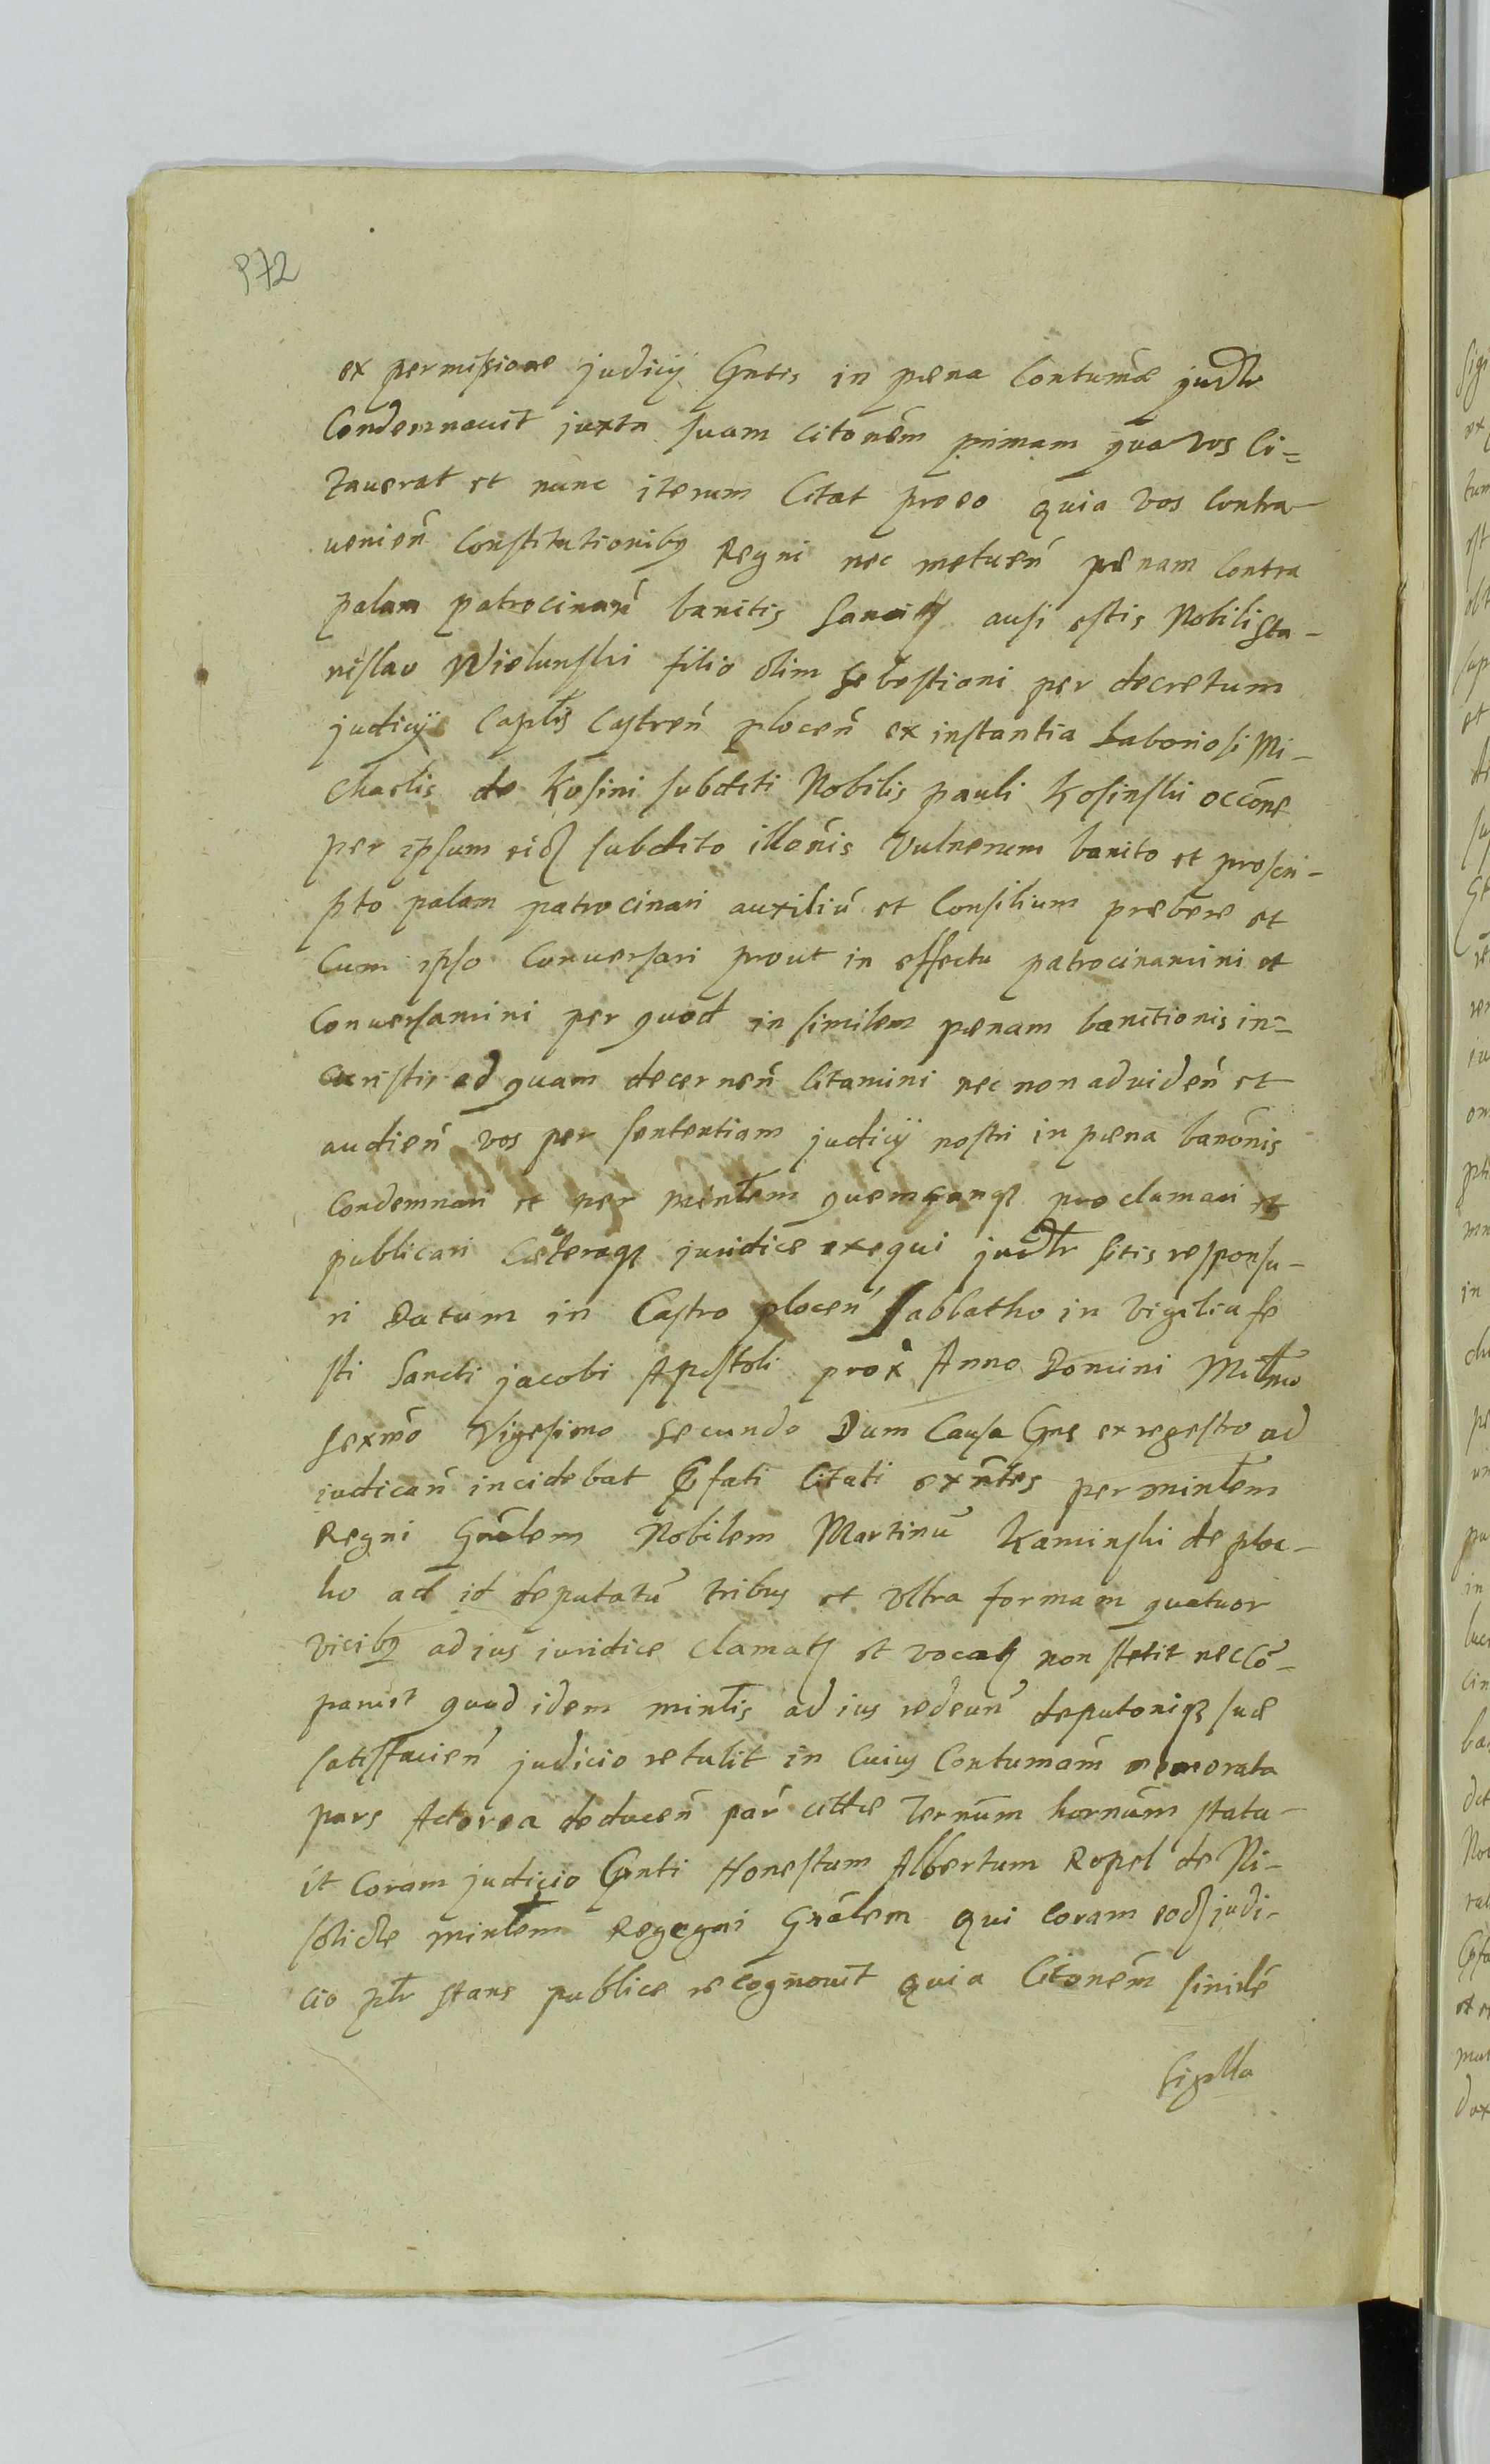 972
ex permissione judicij Gntis in pæna Contumæ judlr
Condemnauit juxta suam citonem primam qua vos Ci=
tauerat et nunc iterum Citat pro eo quia vos Contra
uenien Constitutionibq Regni nec metuen pænam Contra
palam patrocinan banitis ausi estis Nobili Sta-
nislao Wielunski filio olim Sebestiani per decretum
judicij Captlis Castren plocen ex instantia Laboriosi Mi-
chaelis de Kosini subditi Nobilis pauli Kosinski occone
per ipsum eidz subdito illonis Vulnerum banito et proscri-
pto palam patrocinari auxiliu et Consilium præbere et
Cum ipso Conuersari prout in effectu patrocinamini et
Conuersamini per quod in similem pænam banitionis in=
curistis ad quam decernen Citamini nec non ad viden et
audien vos per sententiam judicij nostri in pæna banonis
Condemnari et per mintlem quemcunqz proclamari et
publicari Cæteraqz juridice exequi judlr sitis responsu-
ri Datum in Castro plocen Sabbatho in Vigilia fe
sti Sancti jacobi Apostoli prox Anno Domini Millmo
sexmo Vigesimo Secundo Dum Causa Gns ex regestro ad
iudican incidebat Pfati Citati exntes per mintlem
Regni Gnalem Nobilem Martinu Kaminski de ploc-
ko ad id deputatu tribus et vltra formam quatuor
vicibq ad ius iuridice clamatz et vocatz non stetit nec co-
paruit quod idem mintlis ad ius redeun deputoniqz suæ
satisfacien judicio retulit in Cuius Contumam memorata
pars Actorea deducen par citttæ Ternum hornum statu-
it Coram judicio Gnti Honestum Albertum Ropel de Ni-
slidle mintlem Regegni Gnalem qui Coram eodz judi-
cio plr stans publice recognouit quia Citonem simile
Sigilla